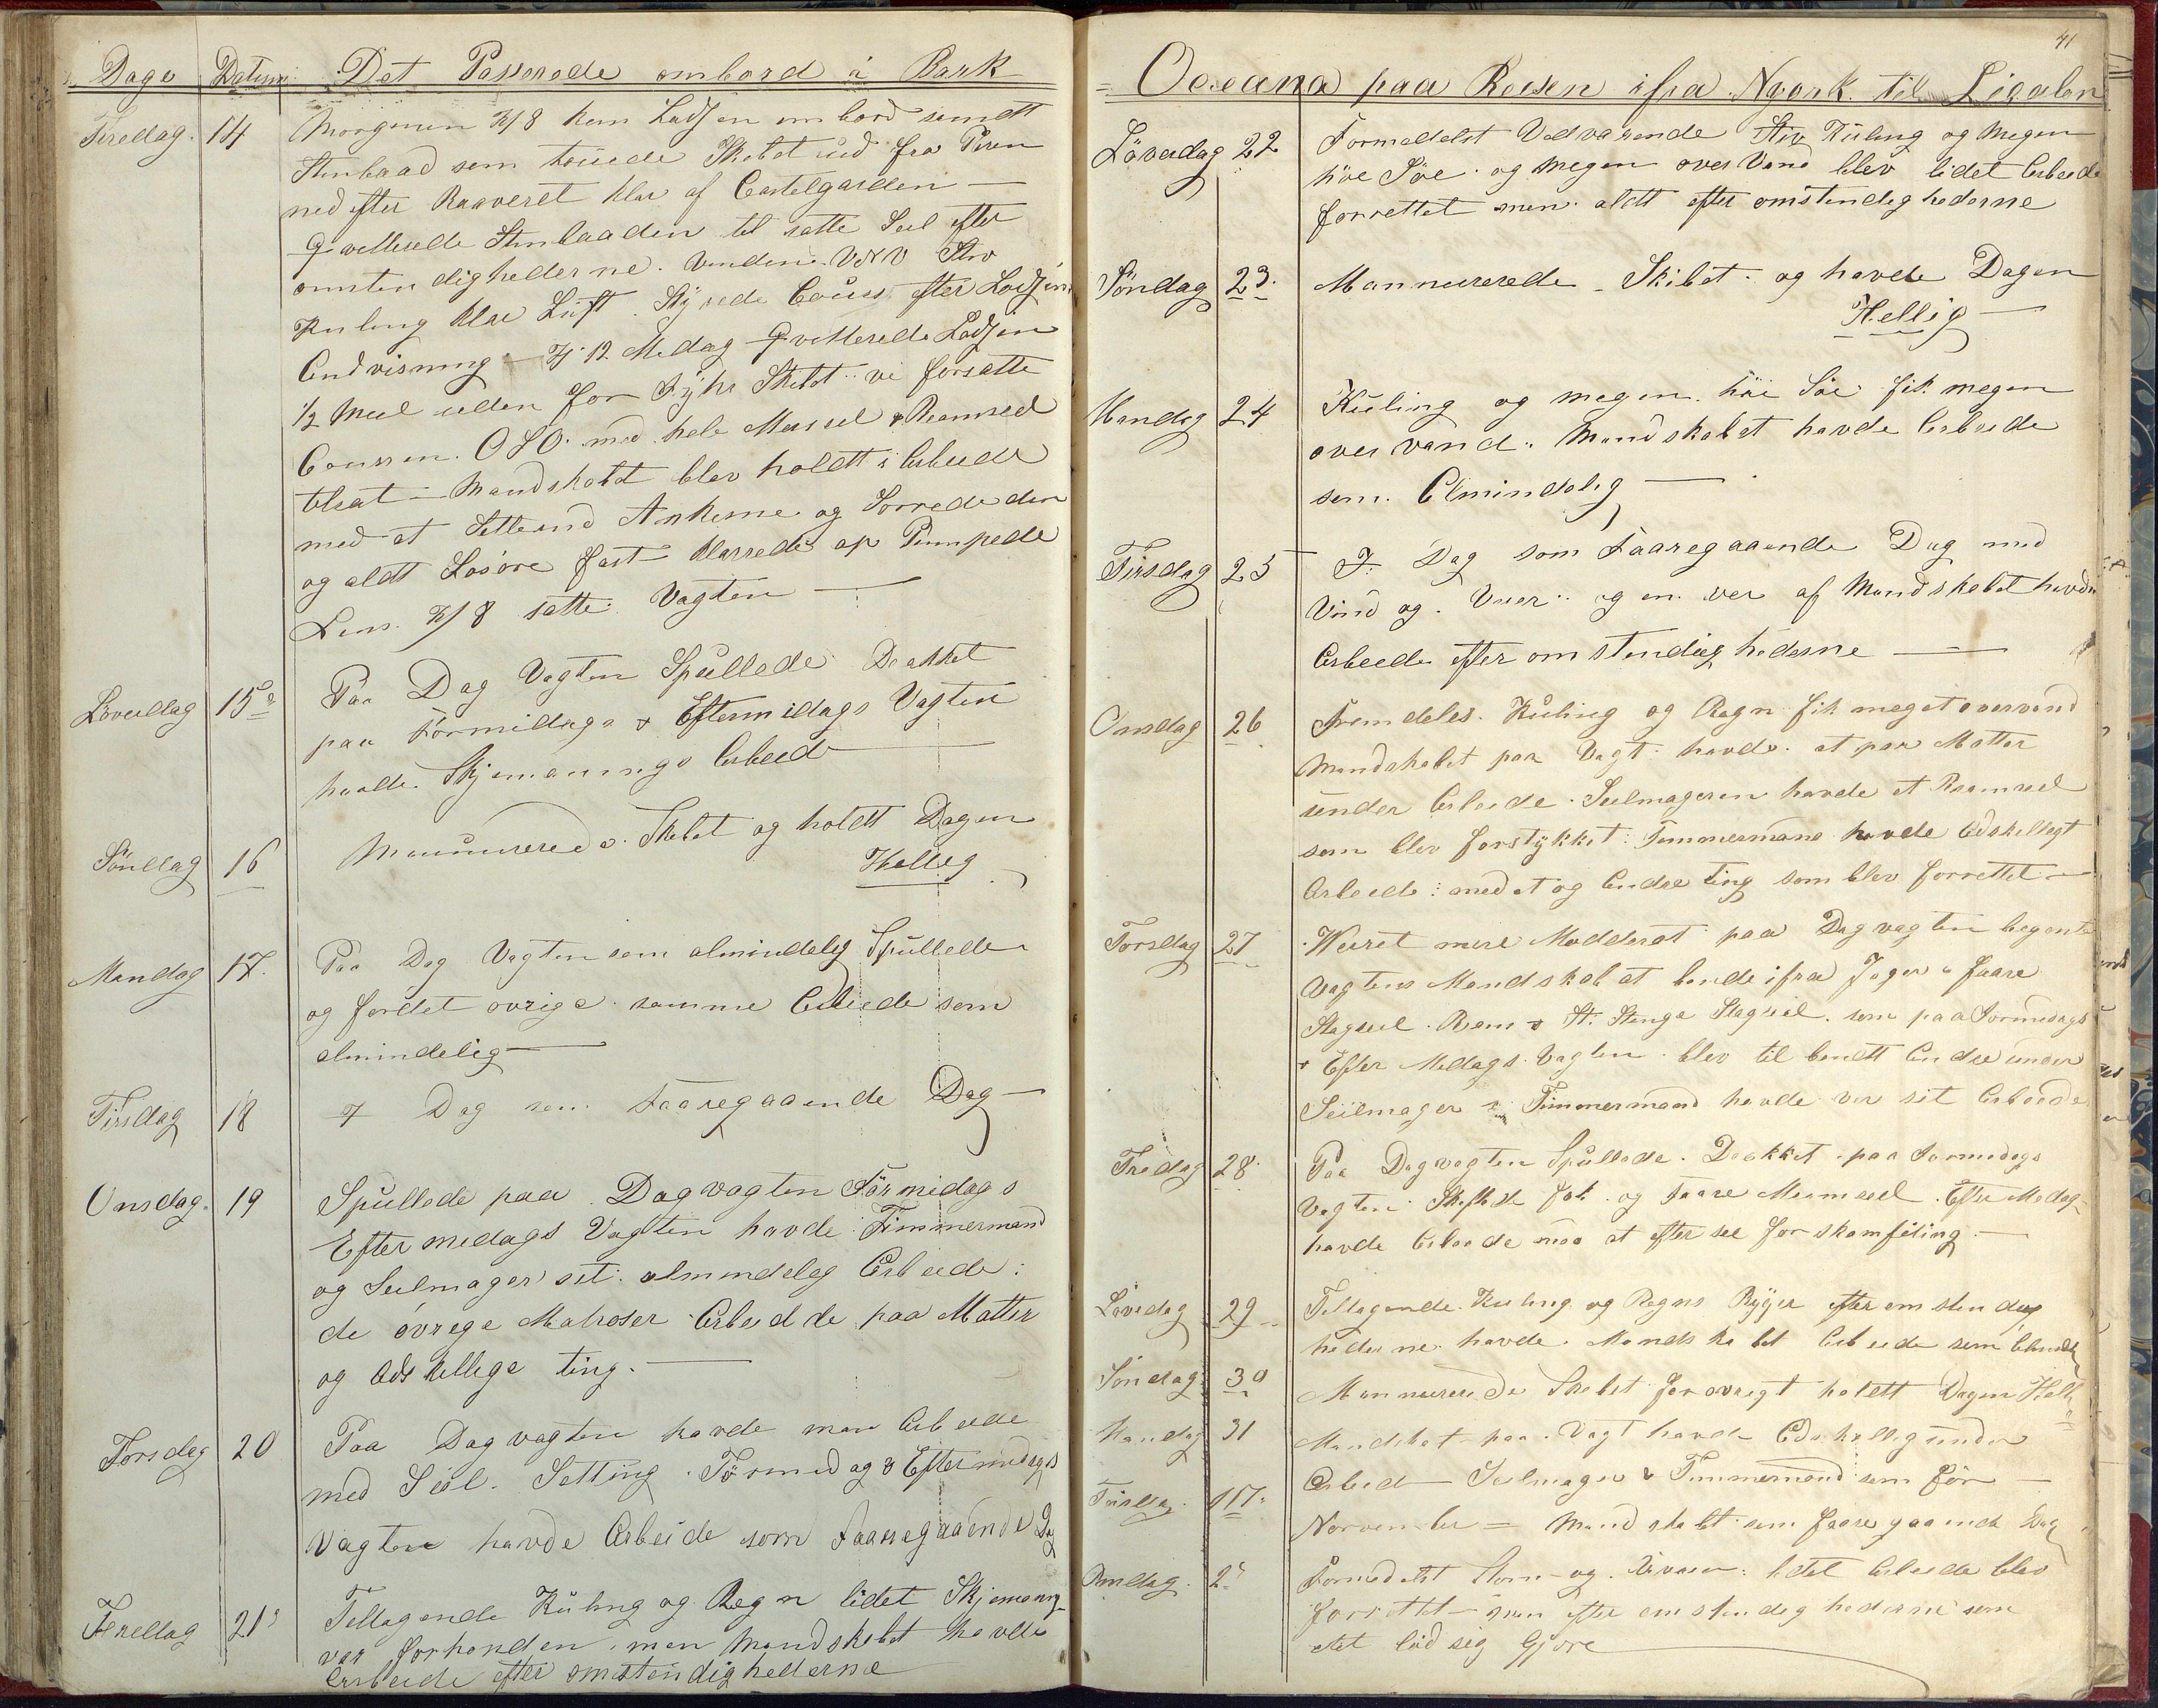 Dage Datum Det Passerede ombord i Bark
Firedag. 14 Morgenen Kl 8 kom Lodsen ombord samdt
Stimbaad som touede Skibet ud fra Peren
ned efter Raaveret klar af Castelgarden —
Qvitterede Stimbaaden til satte Seil efter
omstendighederne. Vinden. VNV Stiv
Kuling klar Luft. Styrede Cours efter Lodsens
Andvisning — Kl 12 Medag Qvitterede Lodsen
1/2 Miil uden for Fyhr Skibet vi forsatte
Coursen. OSO. med hele Mersseil & Bramseil
tilsat — Mandskabet blev holdt i Arbeide
med at Sette ind Ankerne og Sorrede dem
og aldt Løsøre fast klarrede op Pumpede
Lens. Kl 8 satte Vagten —
Løverdag 15de Paa Dag Vagten Spullede Dækket
paa Formidags & Eftermidags Vagten
havde Skjemannings Arbeid —
Søndag 16 Mannuvrerede Skibet og holdt Dagen
Hellig
Mandag 17. Paa Dag Vagten som almindelig Spullede
og fordet øvrige samme Arbeide som
almindelig —
Tirsdag 18 I Dag som Foaregaaende Dag —
Onsdag. 19 Spullede paa Dagvagten Formidags
Eftermedags Vagten havde Timmermand
og Seilmager sit almindelig Arbeide:
de øvrege Matroser Arbeidde paa Matter
og Adskillige ting. —
Torsdag 20 Paa Dagvagten havde man Arbeide
med Seil. Setting. Formidag & Eftermidags
Vagten havde Arbeide som Foaregaaende Dag
Freddag 21de Tiltagende Kuling og Regn lidet Skjemaning
var forhonden. men Mandskabet havde
Arbeide efter omstendighederne
41
Oceana paa Reisen ifra Nyork til
Løverdag 22 Formedelst Vedvarende Stiv Kuling og Megen
høe Søe og megen over Vand blev lidet Arbeide
forrettet men aldt efter omstendighederne
Søndag 23. Mannuvrerede Skibet og havde Dagen
Hellig —
Mandag 24 Kuling og megen høi Søe fik megen
over vand. Mandskabet havde Arbeide
som Almindelig —
Tirsdag 25 I Dag som Foaregaaende Dag med
Vind og Veer og en ver af Mandskabet havde
Arbeide efter omstendighederne —
Onsdag 26 Fremdeles Kuling og Regn fik meget overvand
Mandskabet paa Vagt havde at par Matter
under Arbeide. Seilmageren havde et Bramseil
som blev forstykket: Timmermand havde Adskilligt
Arbeide: med et og Andre ting som blev forrettet —
Torsdag 27 Veiret mere Modderat paa Dagvagten begynte
Vagtens Mandskab at bende ifra Jager & Foare
Stagseil. Bram & St. Stenge Stagseil. som paa Formidags
& Efter Medags Vagten blev til bendt Andre under
Seilmager & Timmermand havde ver sit Arbeide
Fredag 28. Paa Dagvagten Spullede Dækket paa Formidags
Vagten Skiftede fok og Foare Mermseil Efter Medag
havde Arbeide med at efter see for skamfiling —
Løverdag 29 Tiltagende Kuling og Regns Byger efter omstendig
hederne havde Mandskabet Arbeide som
Søndag 30 Mannuvrerede Skibet for øvrigt holdt Dagen
Mandag 31 Mandskabet paa Vagt havde Adskellig under
Arbeid — Seilmager & Timmermand som før —
Tirsdag. 1ste Novvember = Mandskabet som foaregaaende Dag
Onsdag. 2de Formedelst Storm og Uveer lidet Arbeide blev
forrettet — men efter omstendighederne som
det lod sig Gjøre —